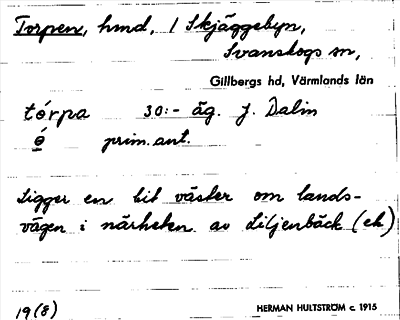 Torpen, hmd, 1 Skjäggebyn,
Svanskogs sn,
Gillbergs hd, Värmlands län
tórpa 30:- äg. J. Dalin
ó prim. ant.
Ligger en bit väster om lands-
vägen i närheten av Liljenbäck (ek)
19(8) HERMAN HULTSTRÖM c. 1915